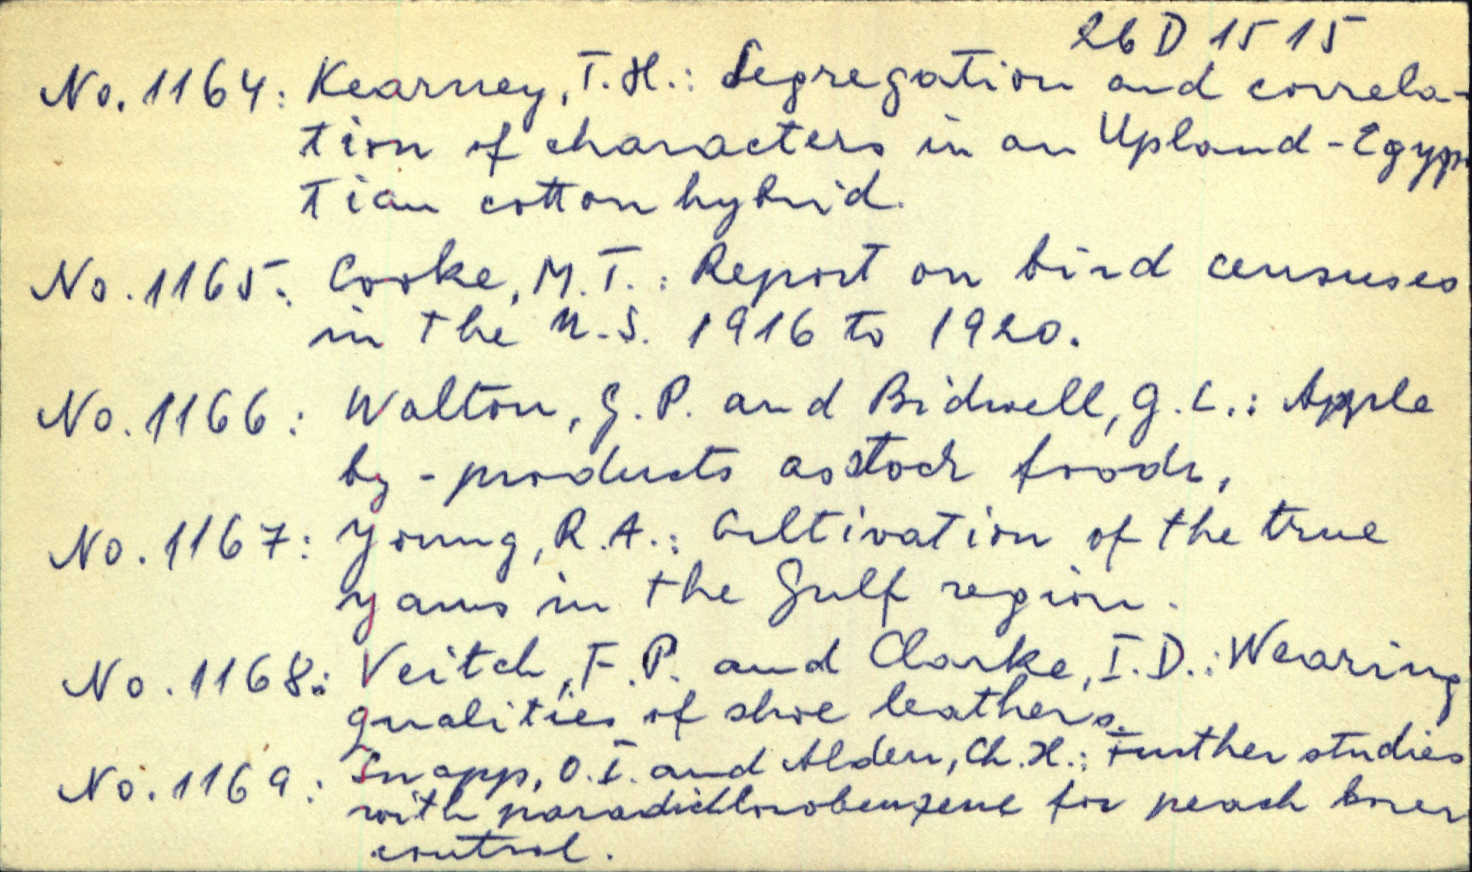 26 D 15 15
No. 1164: Kearney, T. H.: Segregation and correla-
tion of characters in an Upland-Egyp-
tian cotton hybrid.
No. 1165: Cooke, M. T.: Report on bird censuses
in the U. S. 1916 to 1920.
No. 1166: Walton, G. P. and Bidwell, G. L.: Apple
by-products as stock foods,
No. 1167: Young, R. A.: Cultivation of the true
yams in the Gulf region.
No. 1168: Veitch, F. P. and Clarke, I. D.: Wearing
qualities of shoe leathers.
No. 1169: Snapp, O. I. and Alden, Ch. H.: Further studies
with paradichlorobenzene for peach borer
control.